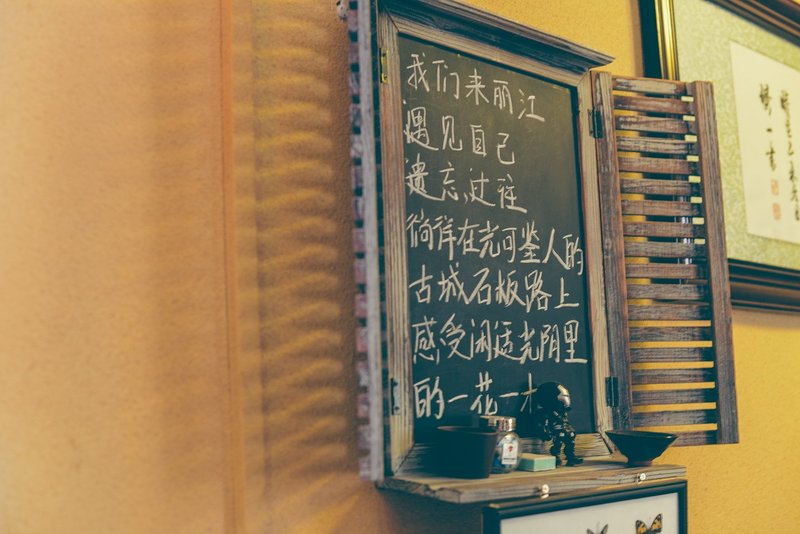 我们来丽江
遇见自己
遗忘过往
徜徉在光可鉴人的
古城石板路上
感受闲适光阴里
的一花一木